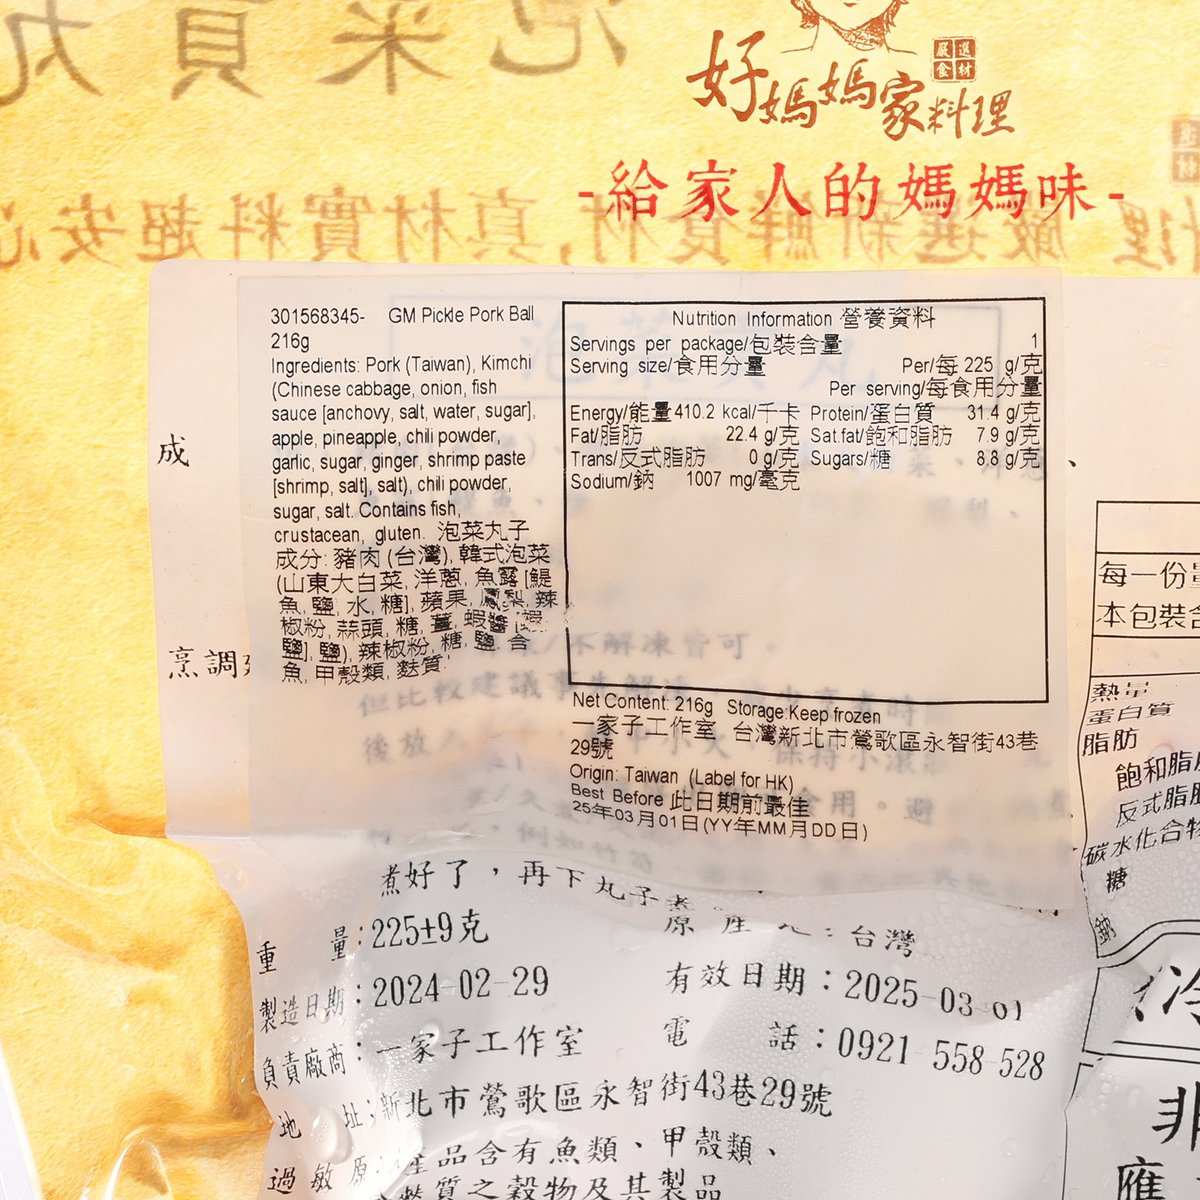 好媽媽家料理
嚴選
食材
-給家人的媽媽味-
301568345- GM Pickle Pork Ball
216g
Ingredients: Pork (Taiwan), Kimchi
(Chinese cabbage, onion, fish
sauce [anchovy, salt, water, sugar],
apple, pineapple, chili powder,
garlic, sugar, ginger, shrimp paste
[shrimp, salt], salt), chili powder,
sugar, salt. Contains fish,
crustacean, gluten. 泡菜丸子
成分: 豬肉 (台灣), 韓式泡菜
(山東大白菜, 洋蔥, 魚露 [鯷
魚, 鹽, 水, 糖], 蘋果, 鳳梨, 辣
椒粉, 蒜頭, 糖, 薑, 蝦醬 [蝦,
鹽], 鹽), 辣椒粉, 糖, 鹽. 含
魚, 甲殼類, 麩質.
Nutrition Information 營養資料
Servings per package/包裝含量 1
Serving size/食用分量 Per/每 225 g/克
Per serving/每食用分量
Energy/能量 410.2 kcal/千卡 Protein/蛋白質 31.4 g/克
Fat/脂肪 22.4 g/克 Sat.fat/飽和脂肪 7.9 g/克
Trans/反式脂肪 0 g/克 Sugars/糖 8.8 g/克
Sodium/鈉 1007 mg/毫克
Net Content: 216g Storage:Keep frozen
一家子工作室 台灣新北市鶯歌區永智街43巷
29號
Origin: Taiwan (Label for HK)
Best Before 此日期前最佳
25年03月01日(YY年MM月DD日)
成
烹調
煮好了，再下丸子煮
重量:225±9克
原產地:台灣
製造日期:2024-02-29
有效日期:2025-03-01
負責廠商:一家子工作室
電話:0921-558-528
地址;新北市鶯歌區永智街43巷29號
過敏原:產品含有魚類、甲殼類、
麩質之穀物及其製品
每一份量
本包裝含
熱量
蛋白質
脂肪
飽和脂肪
反式脂肪
碳水化合物
糖
鈉
冷
非
應